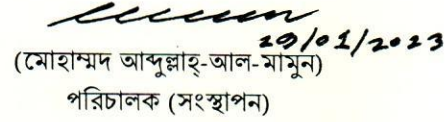 29/01/2023
(মোহাম্মদ আব্দুল্লাহ্-আল-মামুন)
পরিচালক (সংস্থাপন)